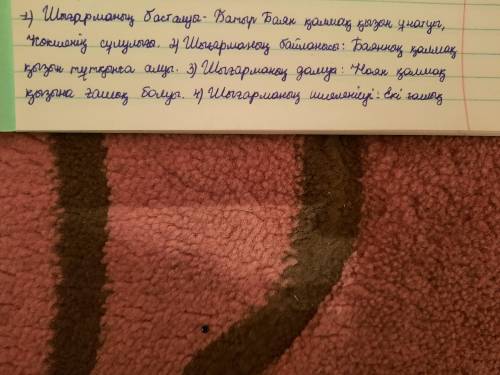 1) Шығарманың басталуы - Батыр Баян қалмақ қызын ұнатуы,
Көкшенің сұлулығы. 2) Шығарманың байланысы: Баянның қалмақ
қызын тұтқынға алуы. 3) Шығарманың дамуы: Ноян қалмақ
қызына ғашық болуы. 4) Шығарманың шиеленісуі: Екі ғашық